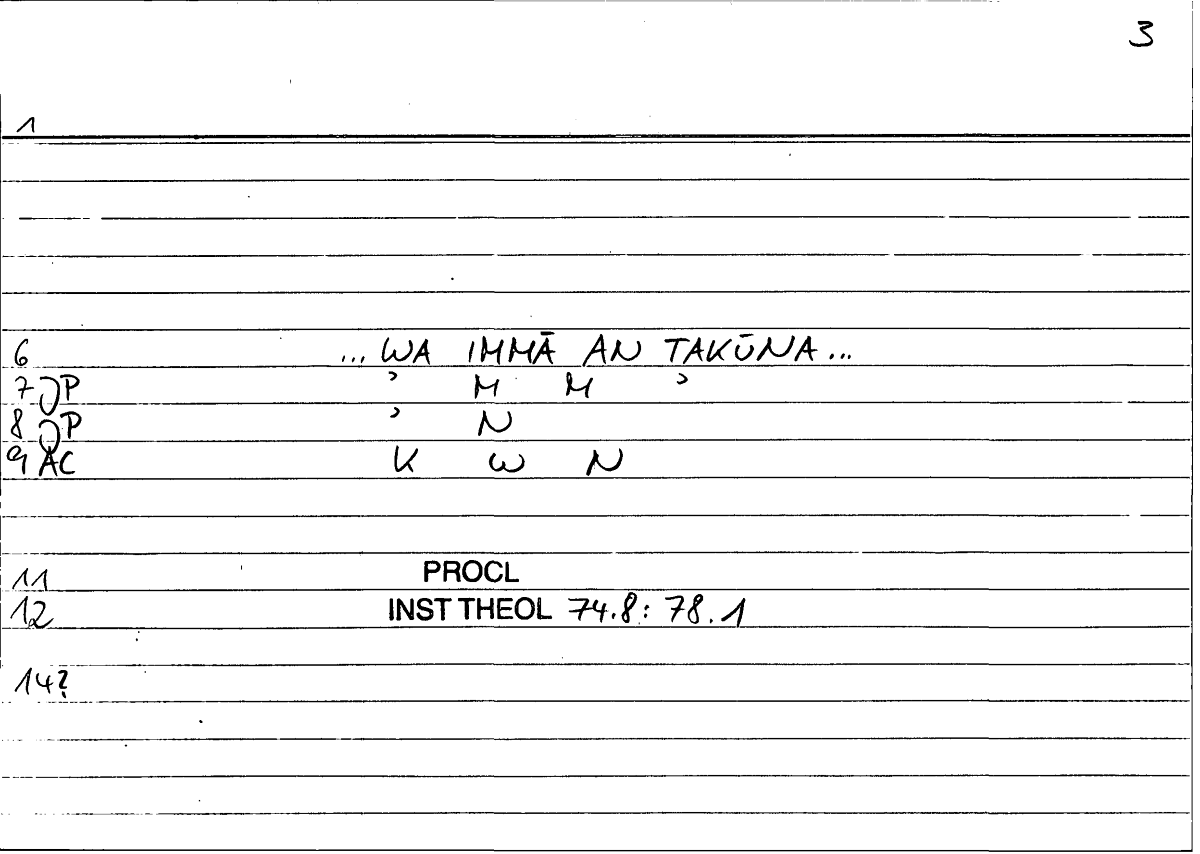 3
1
6 ... WA IMMĀ AN TAKŪNA ...
7 JP ʾ M M ʾ
8 JP ʾ N
9 AC K W N
11 PROCL
12 INST THEOL 74.8: 78.1
14?